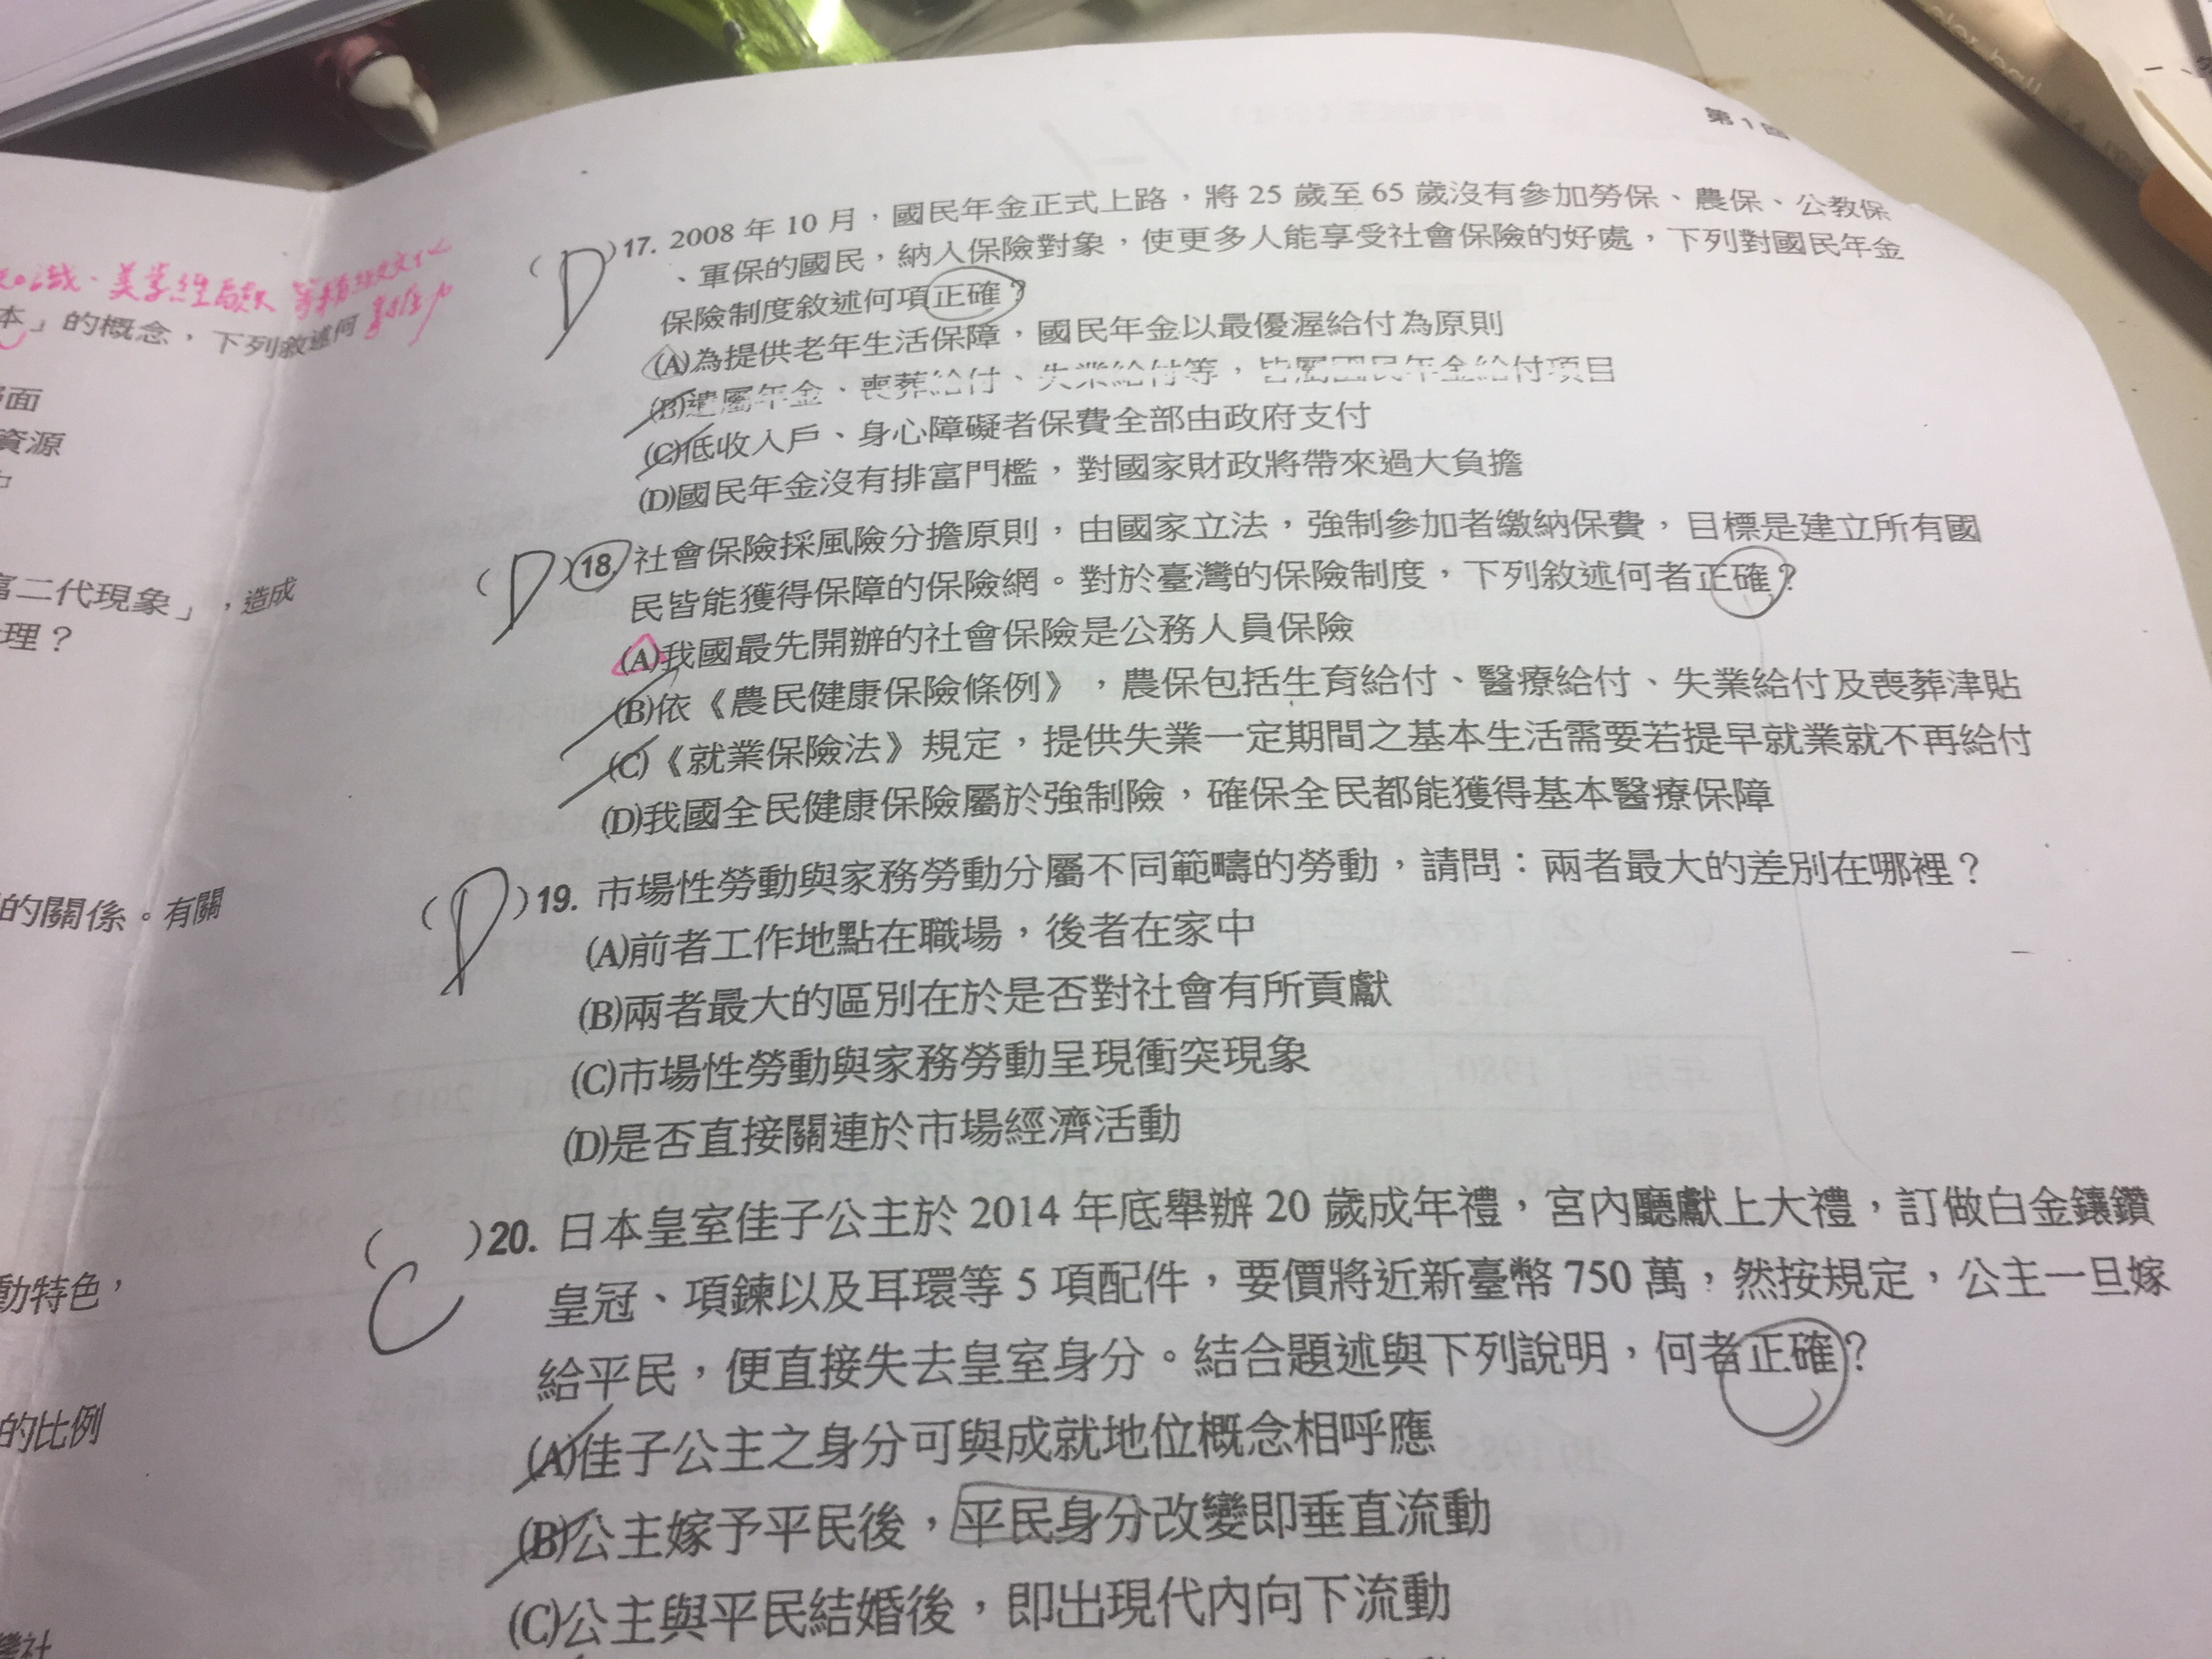 第1回
(D)17. 2008 年 10 月，國民年金正式上路，將 25 歲至 65 歲沒有參加勞保、農保、公教保
、軍保的國民，納入保險對象，使更多人能享受社會保險的好處，下列對國民年金
保險制度敘述何項正確？
(A)為提供老年生活保障，國民年金以最優渥給付為原則
(B)遺屬年金、喪葬給付、失業給付等，皆屬國民年金給付項目
(C)低收入戶、身心障礙者保費全部由政府支付
(D)國民年金沒有排富門檻，對國家財政將帶來過大負擔
(D)18. 社會保險採風險分擔原則，由國家立法，強制參加者繳納保費，目標是建立所有國
民皆能獲得保障的保險網。對於臺灣的保險制度，下列敘述何者正確？
(A)我國最先開辦的社會保險是公務人員保險
(B)依《農民健康保險條例》，農保包括生育給付、醫療給付、失業給付及喪葬津貼
(C)《就業保險法》規定，提供失業一定期間之基本生活需要若提早就業就不再給付
(D)我國全民健康保險屬於強制險，確保全民都能獲得基本醫療保障
(D)19. 市場性勞動與家務勞動分屬不同範疇的勞動，請問：兩者最大的差別在哪裡？
(A)前者工作地點在職場，後者在家中
(B)兩者最大的區別在於是否對社會有所貢獻
(C)市場性勞動與家務勞動呈現衝突現象
(D)是否直接關連於市場經濟活動
(C)20. 日本皇室佳子公主於 2014 年底舉辦 20 歲成年禮，宮內廳獻上大禮，訂做白金鑲鑽
皇冠、項鍊以及耳環等 5 項配件，要價將近新臺幣 750 萬，然按規定，公主一旦嫁
給平民，便直接失去皇室身分。結合題述與下列說明，何者正確？
(A)佳子公主之身分可與成就地位概念相呼應
(B)公主嫁予平民後，平民身分改變即垂直流動
(C)公主與平民結婚後，即出現代內向下流動
本」的概念，下列敘述何
面
資源
富二代現象」，造成
理？
的關係。有關
動特色，
的比例